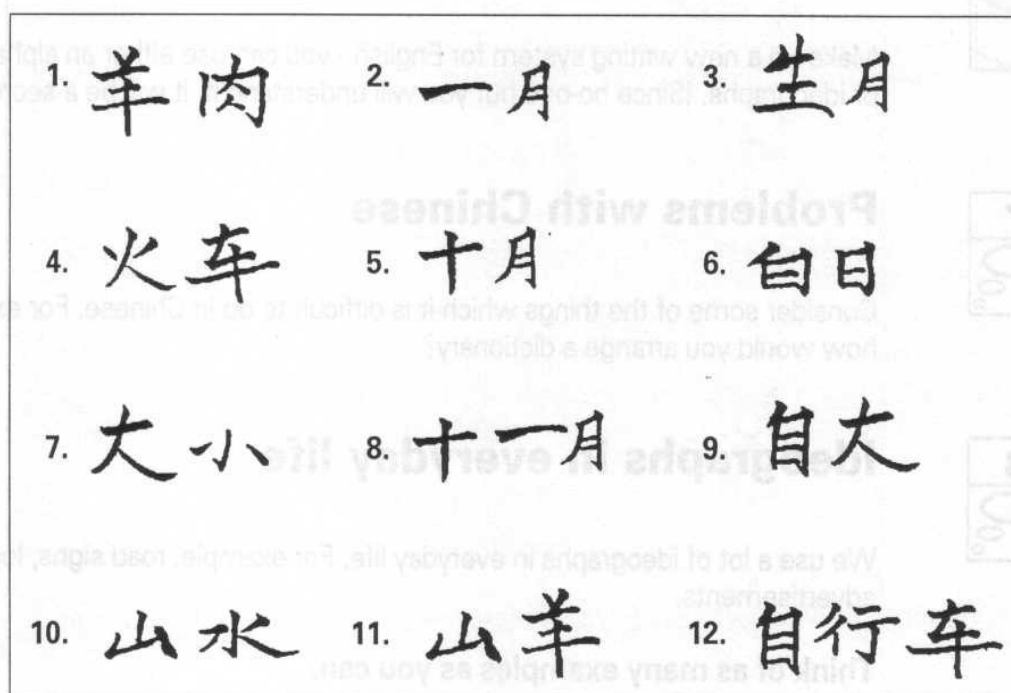 1. 羊肉 2. 一月 3. 生月
4. 火车 5. 十月 6. 白日
7. 大小 8. 十一月 9. 自大
10. 山水 11. 山羊 12. 自行车